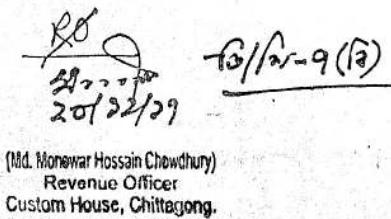 RO
ডি/সি-৭ (বি)
২০/১২/২১
(Md. Monowar Hossain Chowdhury)
Revenue Officer
Custom House, Chittagong.